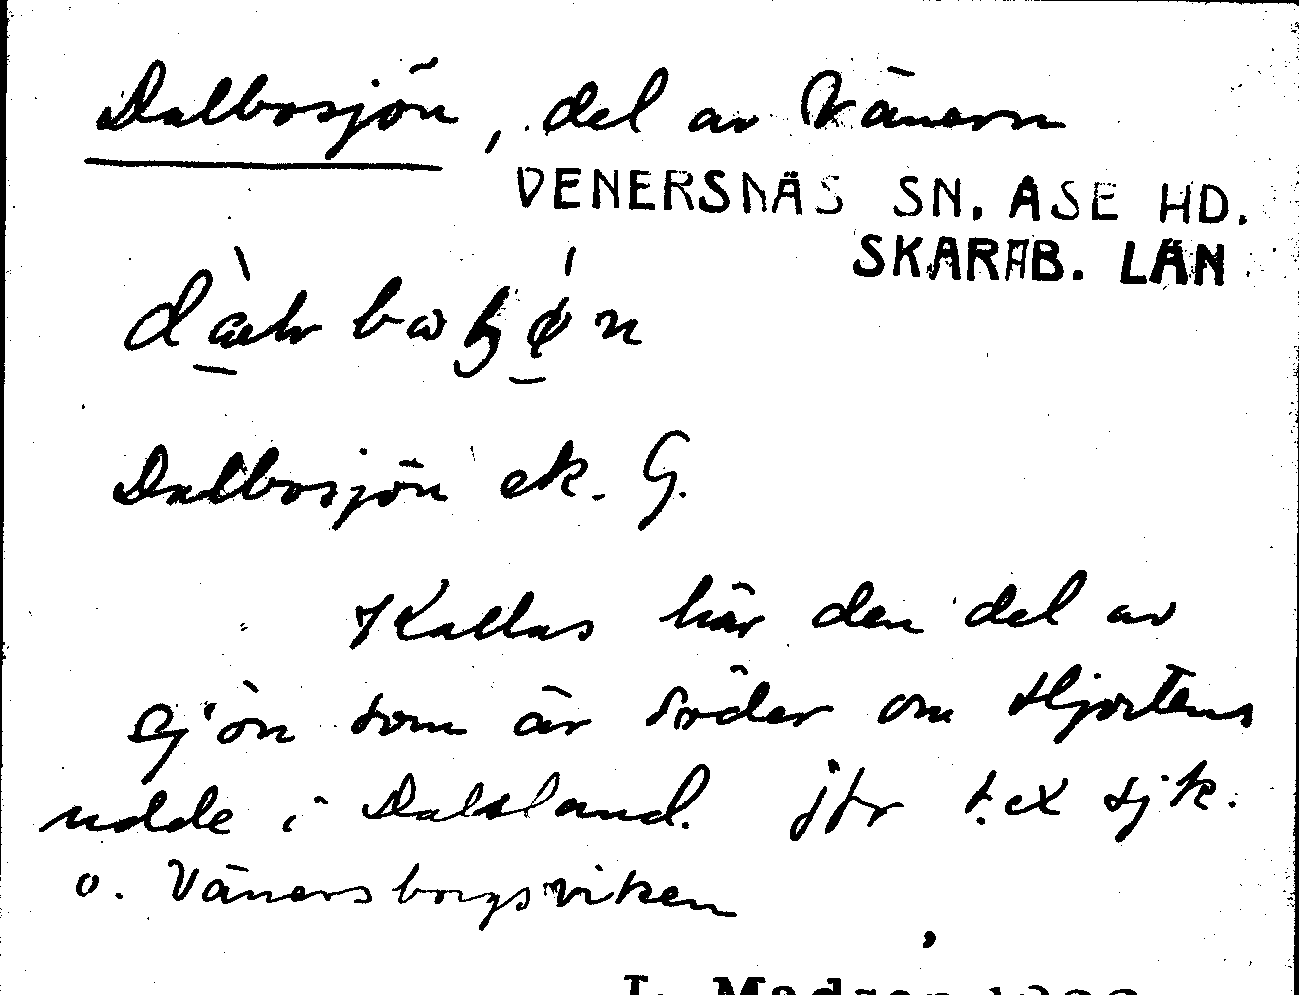 Dalbosjön, del av Vänern
VENERSNÄS SN. ASE HD.
SKARAB. LÄN
Dalbosjön ek. G.
Kallas här den del av
sjön som är söder om Hjortens
udde i Dalsland. jfr t.ex sjk.
o. Vänersborgsviken